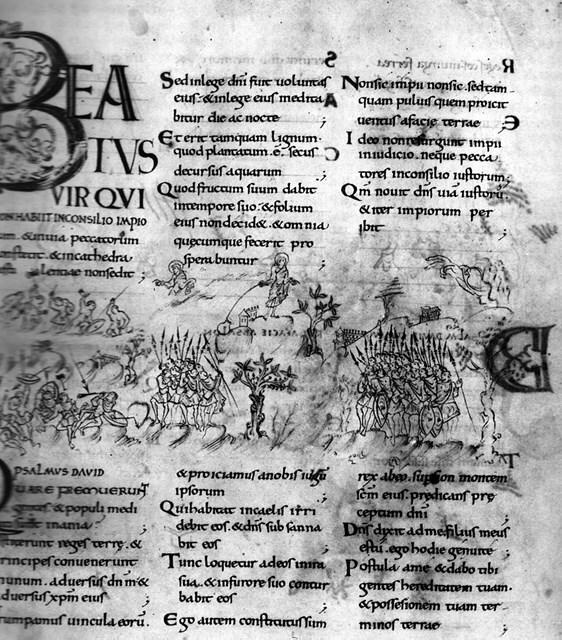 BEA
TVS
VIR QVI
HABIIT INCONSILIO IMPIO
& inuia peccatorum
& incathedra
lentiae nonsedit ;
Sed inlege dni fuit voluntas
eius· & inlege eius medita
bitur die ac nocte ;
Et erit tamquam lignum·
quod plantatum ē· secus
decursus aquarum ;
Quod fructum suum dabit
intempore suo· & folium
eius non decid&· & omnia
quęcumque fecerit pro
spera buntur ;
Nonsic impii nonsic· sed tam
quam puluis quem proicit
uentus afacie terrae ;
Ideo non resurgunt impii
iniudicio· neque pecca
tores inconsilio iustorum ;
Qm nouit dns uiā iustorū·
& iter impiorum per
ibit ;
PSALMVS DAVID
QUARE FREMUERUNT
gentes & populi medi
inania
reges terrę· &
principes convenerunt
unum· aduersus dnm &
aduersus xpm eius ;
rumpamus uincula eorū·
& proiciamus anobis iugū
ipsorum ;
Qui habitat incaelis irri
debit eos· & dns sub sanna
bit eos ;
Tunc loquetur adeos inira
sua· & infurore suo contur
babit eos ;
Ego autem constitutus sum
rex abeo· super sion montem
scm eius· predicans pre
ceptum dni ;
Dns dixit ad me filius meus
es tu· ego hodie genuite ;
Postula ame & dabo tibi
gentes hereditatem tuam·
& possesionem tuam ter
minos terrae ;